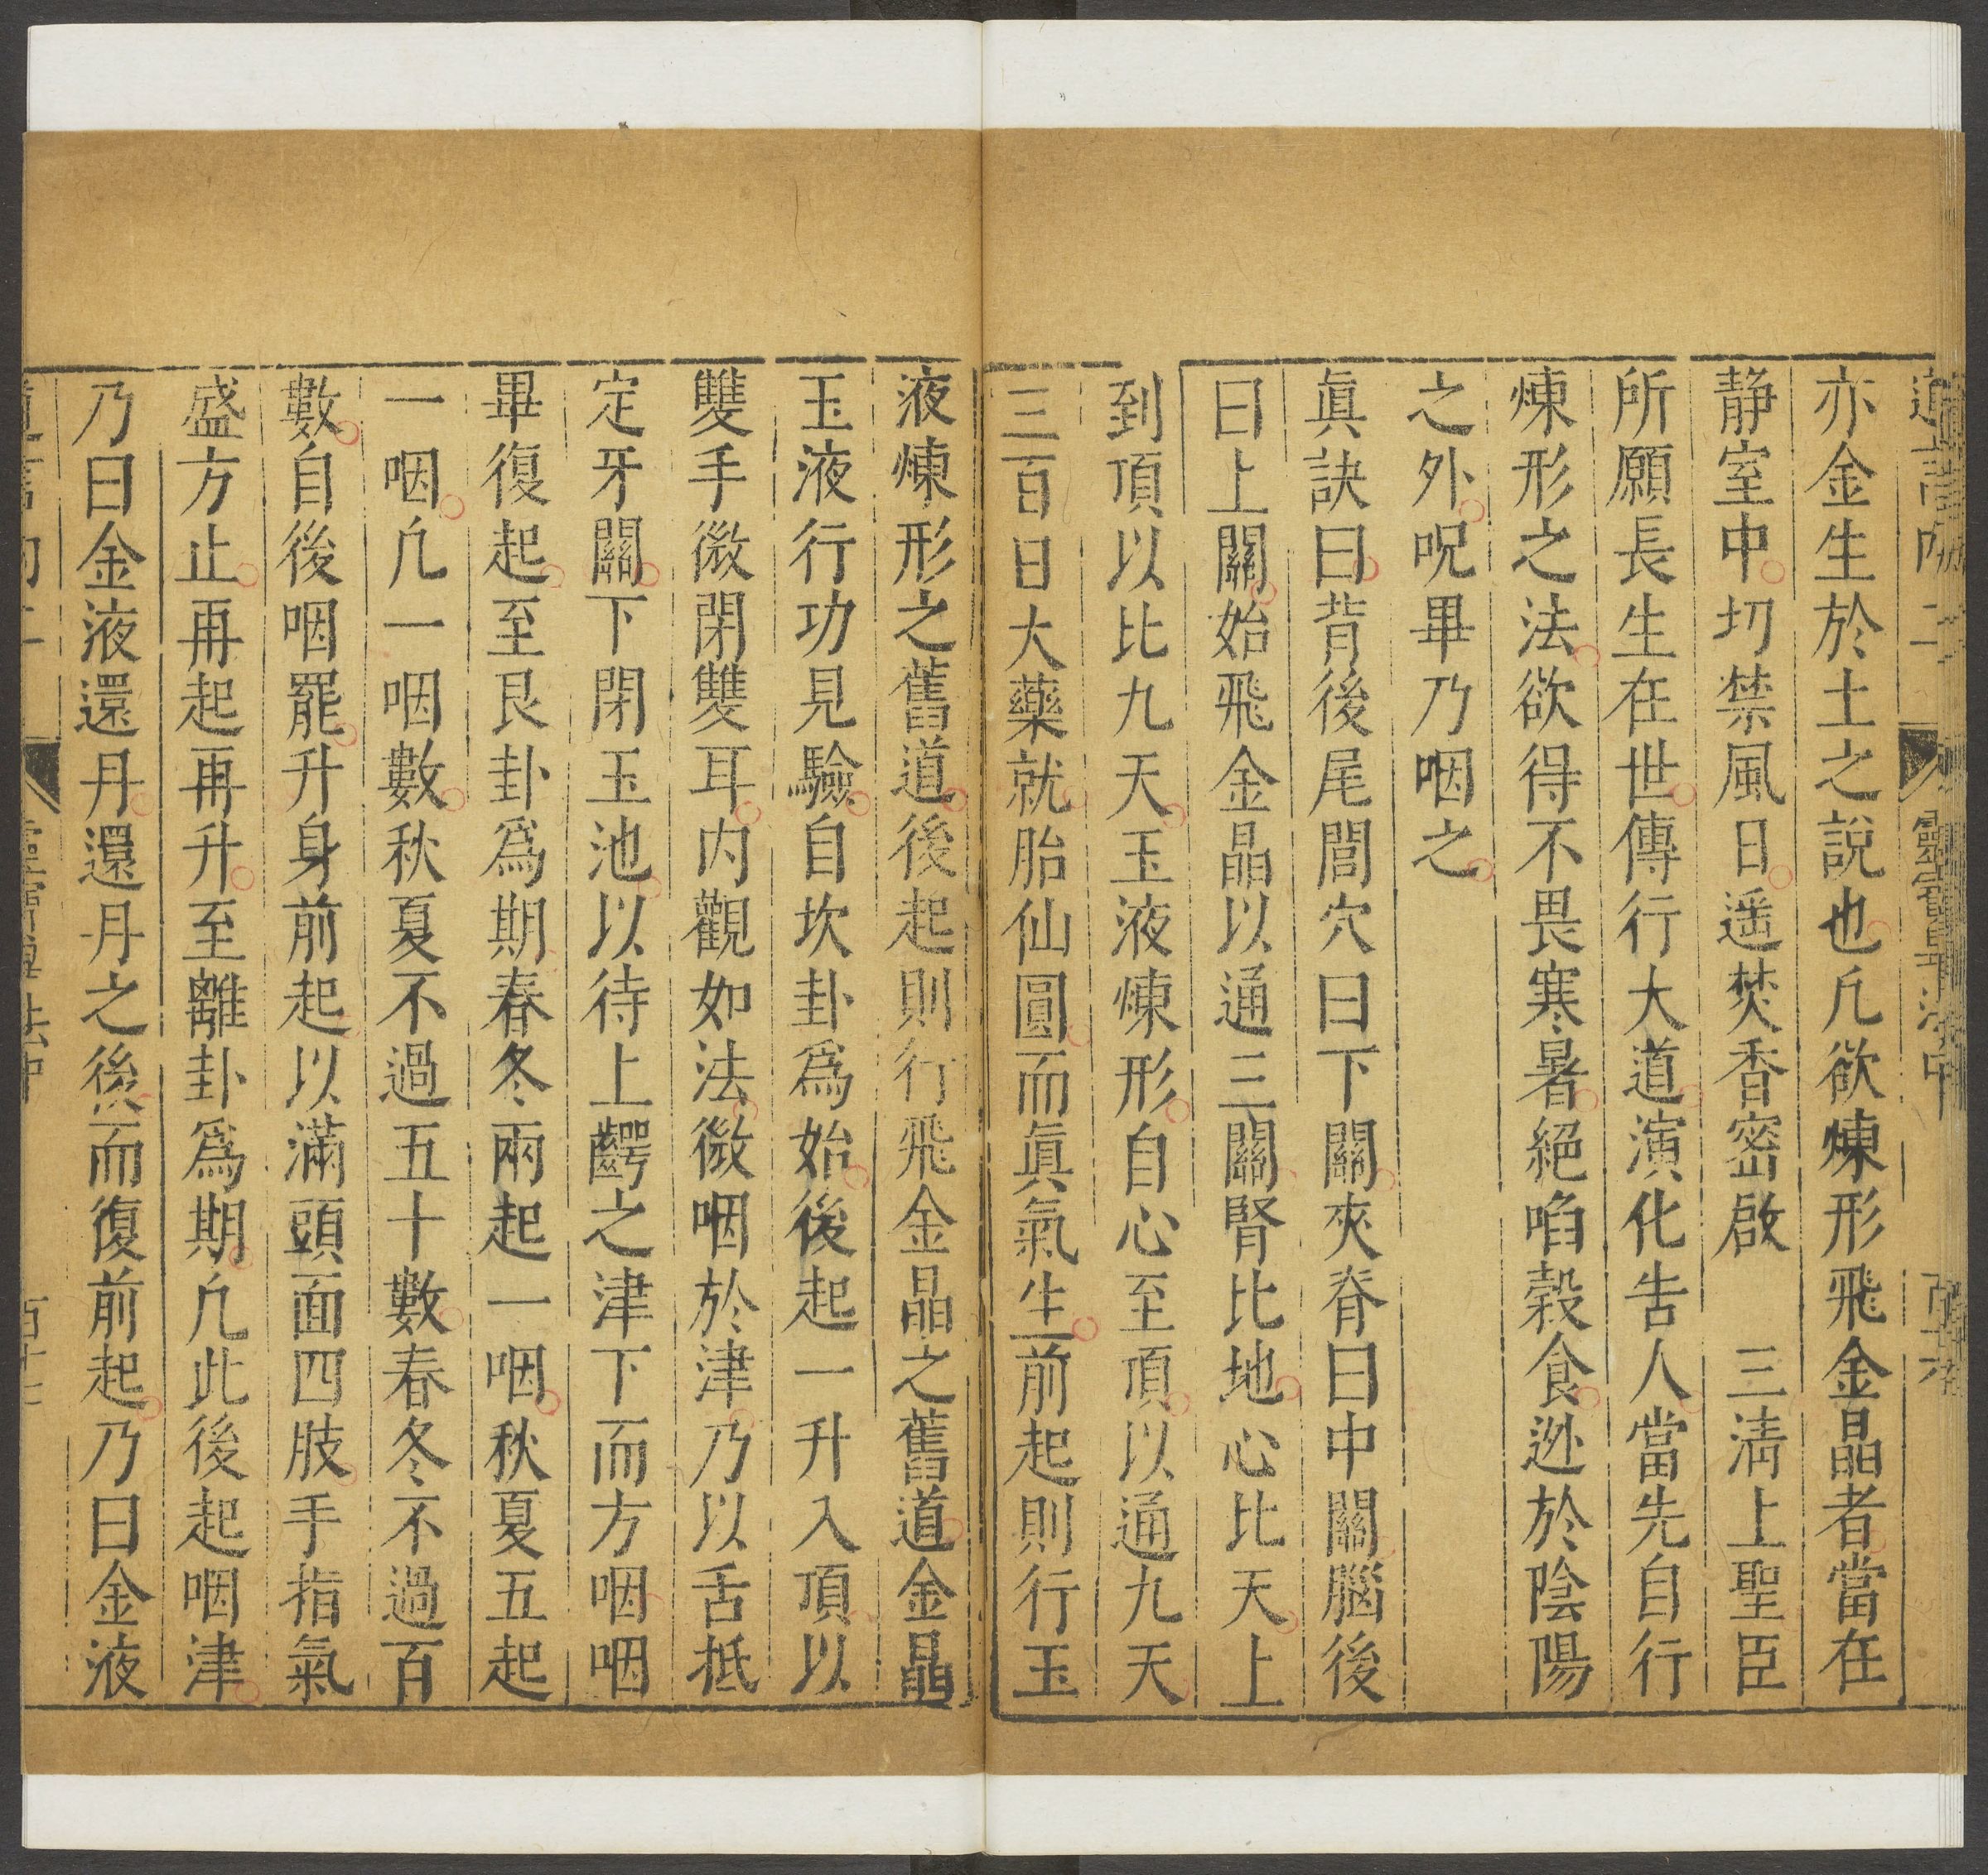 亦金生於土之說也凡欲煉形飛金晶者當在
靜室中切禁風日遥焚香密啟　三淸上聖臣
所願長生在世傳行大道演化告人當先自行
煉形之法欲得不畏寒暑絕啗穀食逃於陰陽
之外呪畢乃咽之
眞訣曰背後尾閭穴曰下關夾脊曰中關腦後
曰上關始飛金晶以通三關腎比地心比天上
到頂以比九天玉液煉形自心至頂以通九天
三百日大藥就胎仙圓而眞氣生前起則行玉
液煉形之舊道後起則行飛金晶之舊道金晶
玉液行功見驗自坎卦爲始後起一升入頂以
雙手微閉雙耳内觀如法微咽於津乃以舌抵
定牙關下閉玉池以待上齶之津下而方咽咽
畢復起至艮卦爲期春冬兩起一咽秋夏五起
一咽凡一咽數秋夏不過五十數春冬不過百
數自後咽罷升身前起以滿頭面四肢手指氣
盛方止再起再升至離卦爲期凡此後起咽津
乃曰金液還丹還丹之後而復前起乃曰金液